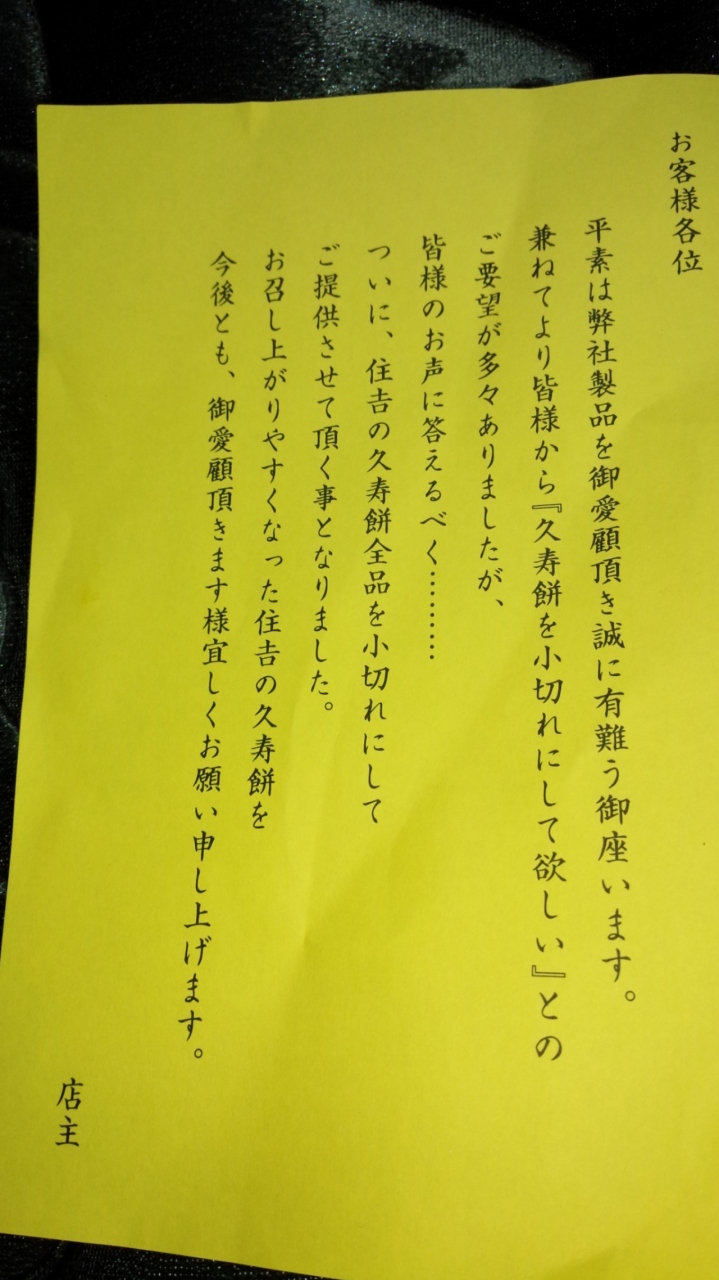 お客様各位
平素は弊社製品を御愛顧頂き誠に有難う御座います。
兼ねてより皆様から『久寿餅を小切れにして欲しい』との
ご要望が多々ありましたが、
皆様のお声に答えるべく………
ついに、住吉の久寿餅全品を小切れにして
ご提供させて頂く事となりました。
お召し上がりやすくなった住吉の久寿餅を
今後とも、御愛顧頂きます様宜しくお願い申し上げます。
店主